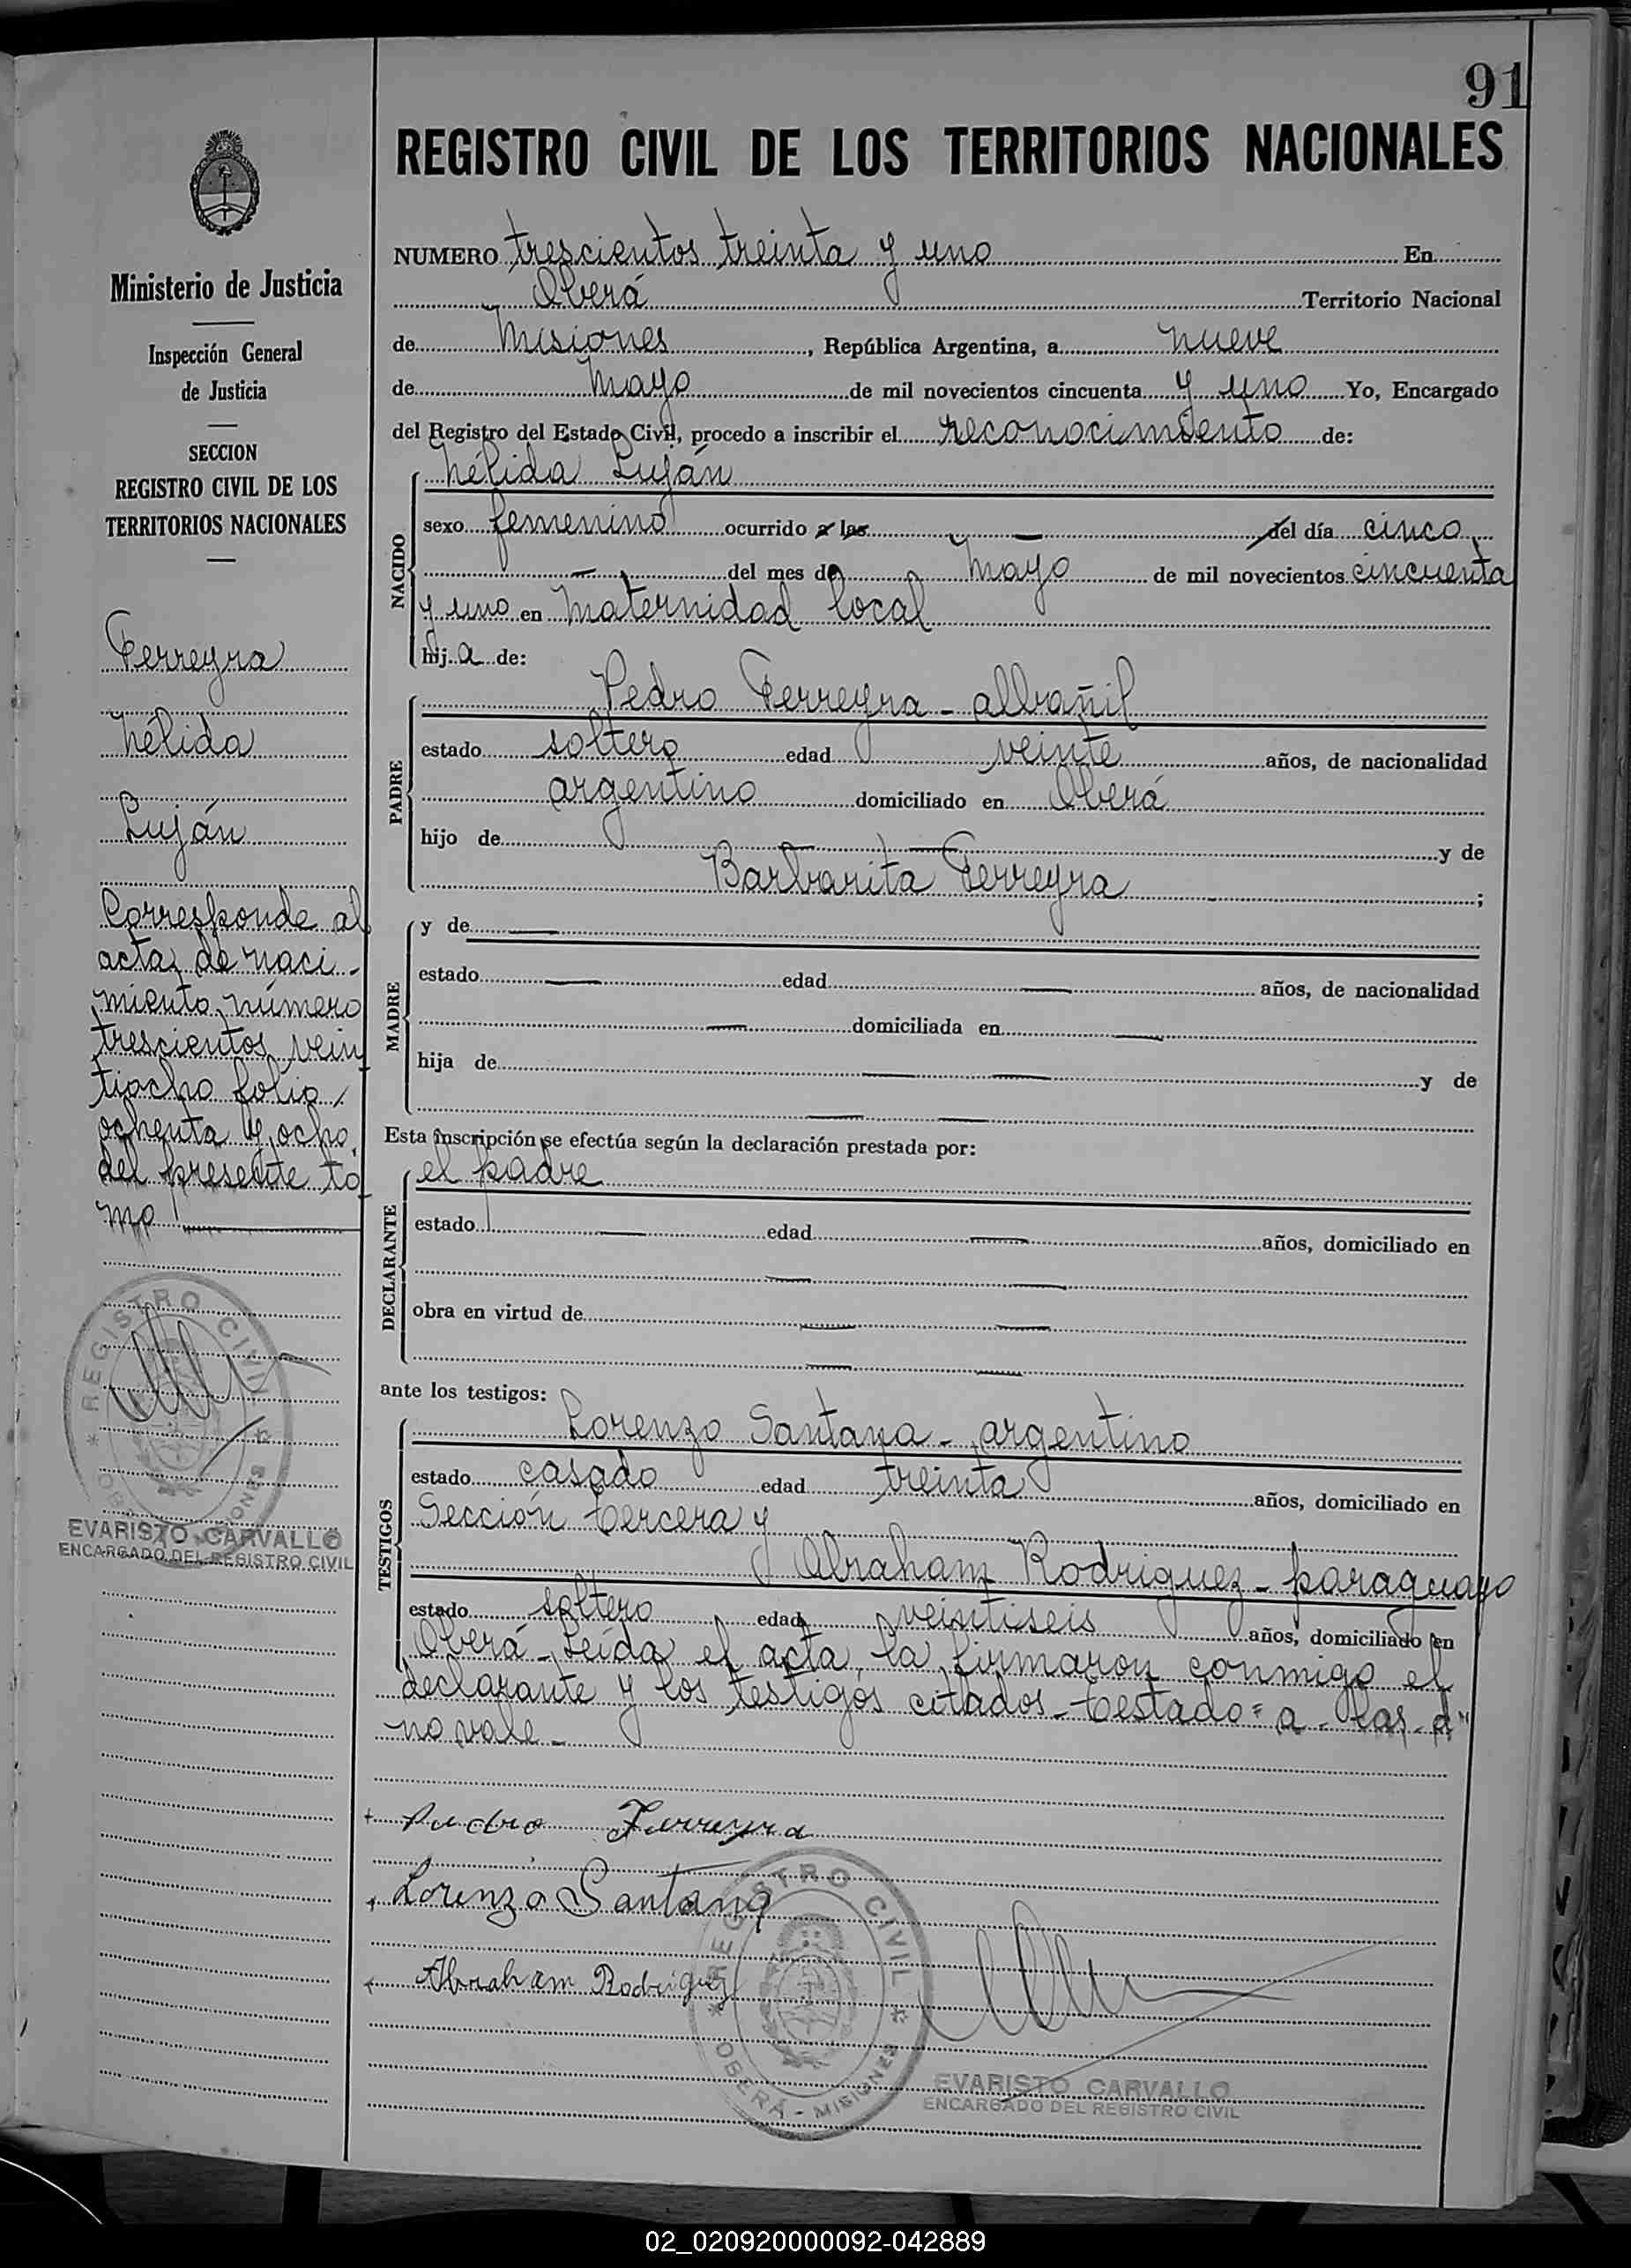 91
REGISTRO CIVIL DE LOS TERRITORIOS NACIONALES
Ministerio de Justicia
Inspección General
de Justicia
SECCION
REGISTRO CIVIL DE LOS
TERRITORIOS NACIONALES
Ferreyra
Nélida
Luján
Corresponde al
acta de naci-
miento número
trescientos vein
tiocho folio
ochenta y ocho
del presente to
mo
REGISTRO CIVIL
OBERÁ - MISIONES
EVARISTO CARVALLO
ENCARGADO DEL REGISTRO CIVIL
NUMERO trescientos treinta y uno En
Oberá Territorio Nacional
de Misiones, República Argentina, a nueve
de Mayo de mil novecientos cincuenta y uno Yo, Encargado
del Registro del Estado Civil, procedo a inscribir el reconocimiento de:
NACIDO
Nélida Luján
sexo femenino ocurrido a las — del día cinco
— del mes de Mayo de mil novecientos cincuenta
y uno en Maternidad local
hija de:
PADRE
Pedro Ferreyra - albañil
estado soltero edad veinte años, de nacionalidad
argentino domiciliado en Oberá
hijo de — — y de
Barbarita Ferreyra ;
MADRE
y de —
estado — edad — años, de nacionalidad
— domiciliada en —
hija de — — y de
— —
Esta inscripción se efectúa según la declaración prestada por:
DECLARANTE
el padre
estado — edad — años, domiciliado en
— —
obra en virtud de — —
— —
ante los testigos:
TESTIGOS
Lorenzo Santana - argentino
estado casado edad treinta años, domiciliado en
Sección tercera y
Abraham Rodriguez - paraguayo
estado soltero edad veintiseis años, domiciliado en
Oberá - Leída el acta, la firmaron conmigo el
declarante y los testigos citados - testado = a - las - d"
no vale -
Pedro Ferreyra
Lorenzo Santana
Abraham Rodriguez
REGISTRO CIVIL
OBERÁ - MISIONES
EVARISTO CARVALLO
ENCARGADO DEL REGISTRO CIVIL
02_020920000092-042889